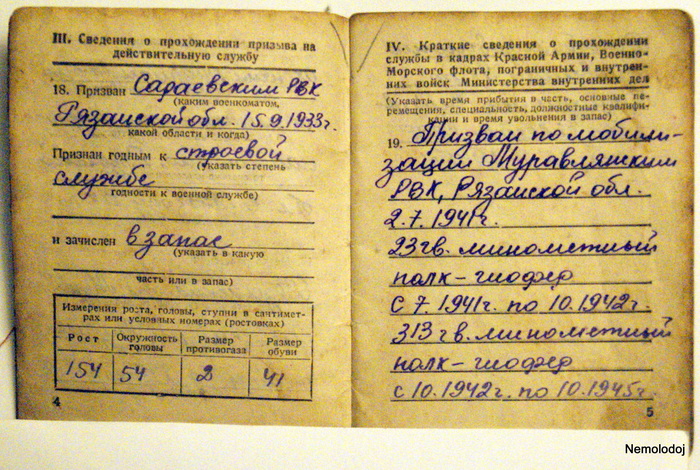 III. Сведения о прохождении призыва на
действительную службу
18. Призван Сараевским РВК
(каким военкоматом,
Рязанской обл. 15.9.1933г.
какой области и когда)
Признан годным к строевой
(указать степень
службе
годности к военной службе)
и зачислен в запас
(указать в какую
часть или в запас)
Измерения роста, головы, ступни в сантимет-
рах или условных номерах (ростовках)
Рост Окружность головы Размер противогаза Размер обуви
154 54 2 41
4
IV. Краткие сведения о прохождении
службы в кадрах Красной Армии, Военно-
Морского флота, пограничных и внутрен-
них войск Министерства внутренних дел
(Указать время прибытия в часть, основные пе-
ремещения, специальность, должностные квалифи-
кации и время увольнения в запас)
19. Призван по мобили-
зации Муравлянским
РВК, Рязанской обл.
2.7.1941г.
23 гв. минометный
полк - шофер
с 7.1941г. по 10.1942г.
313 гв. минометный
полк - шофер
с 10.1942г. по 10.1945г.
5
Nemolodoj